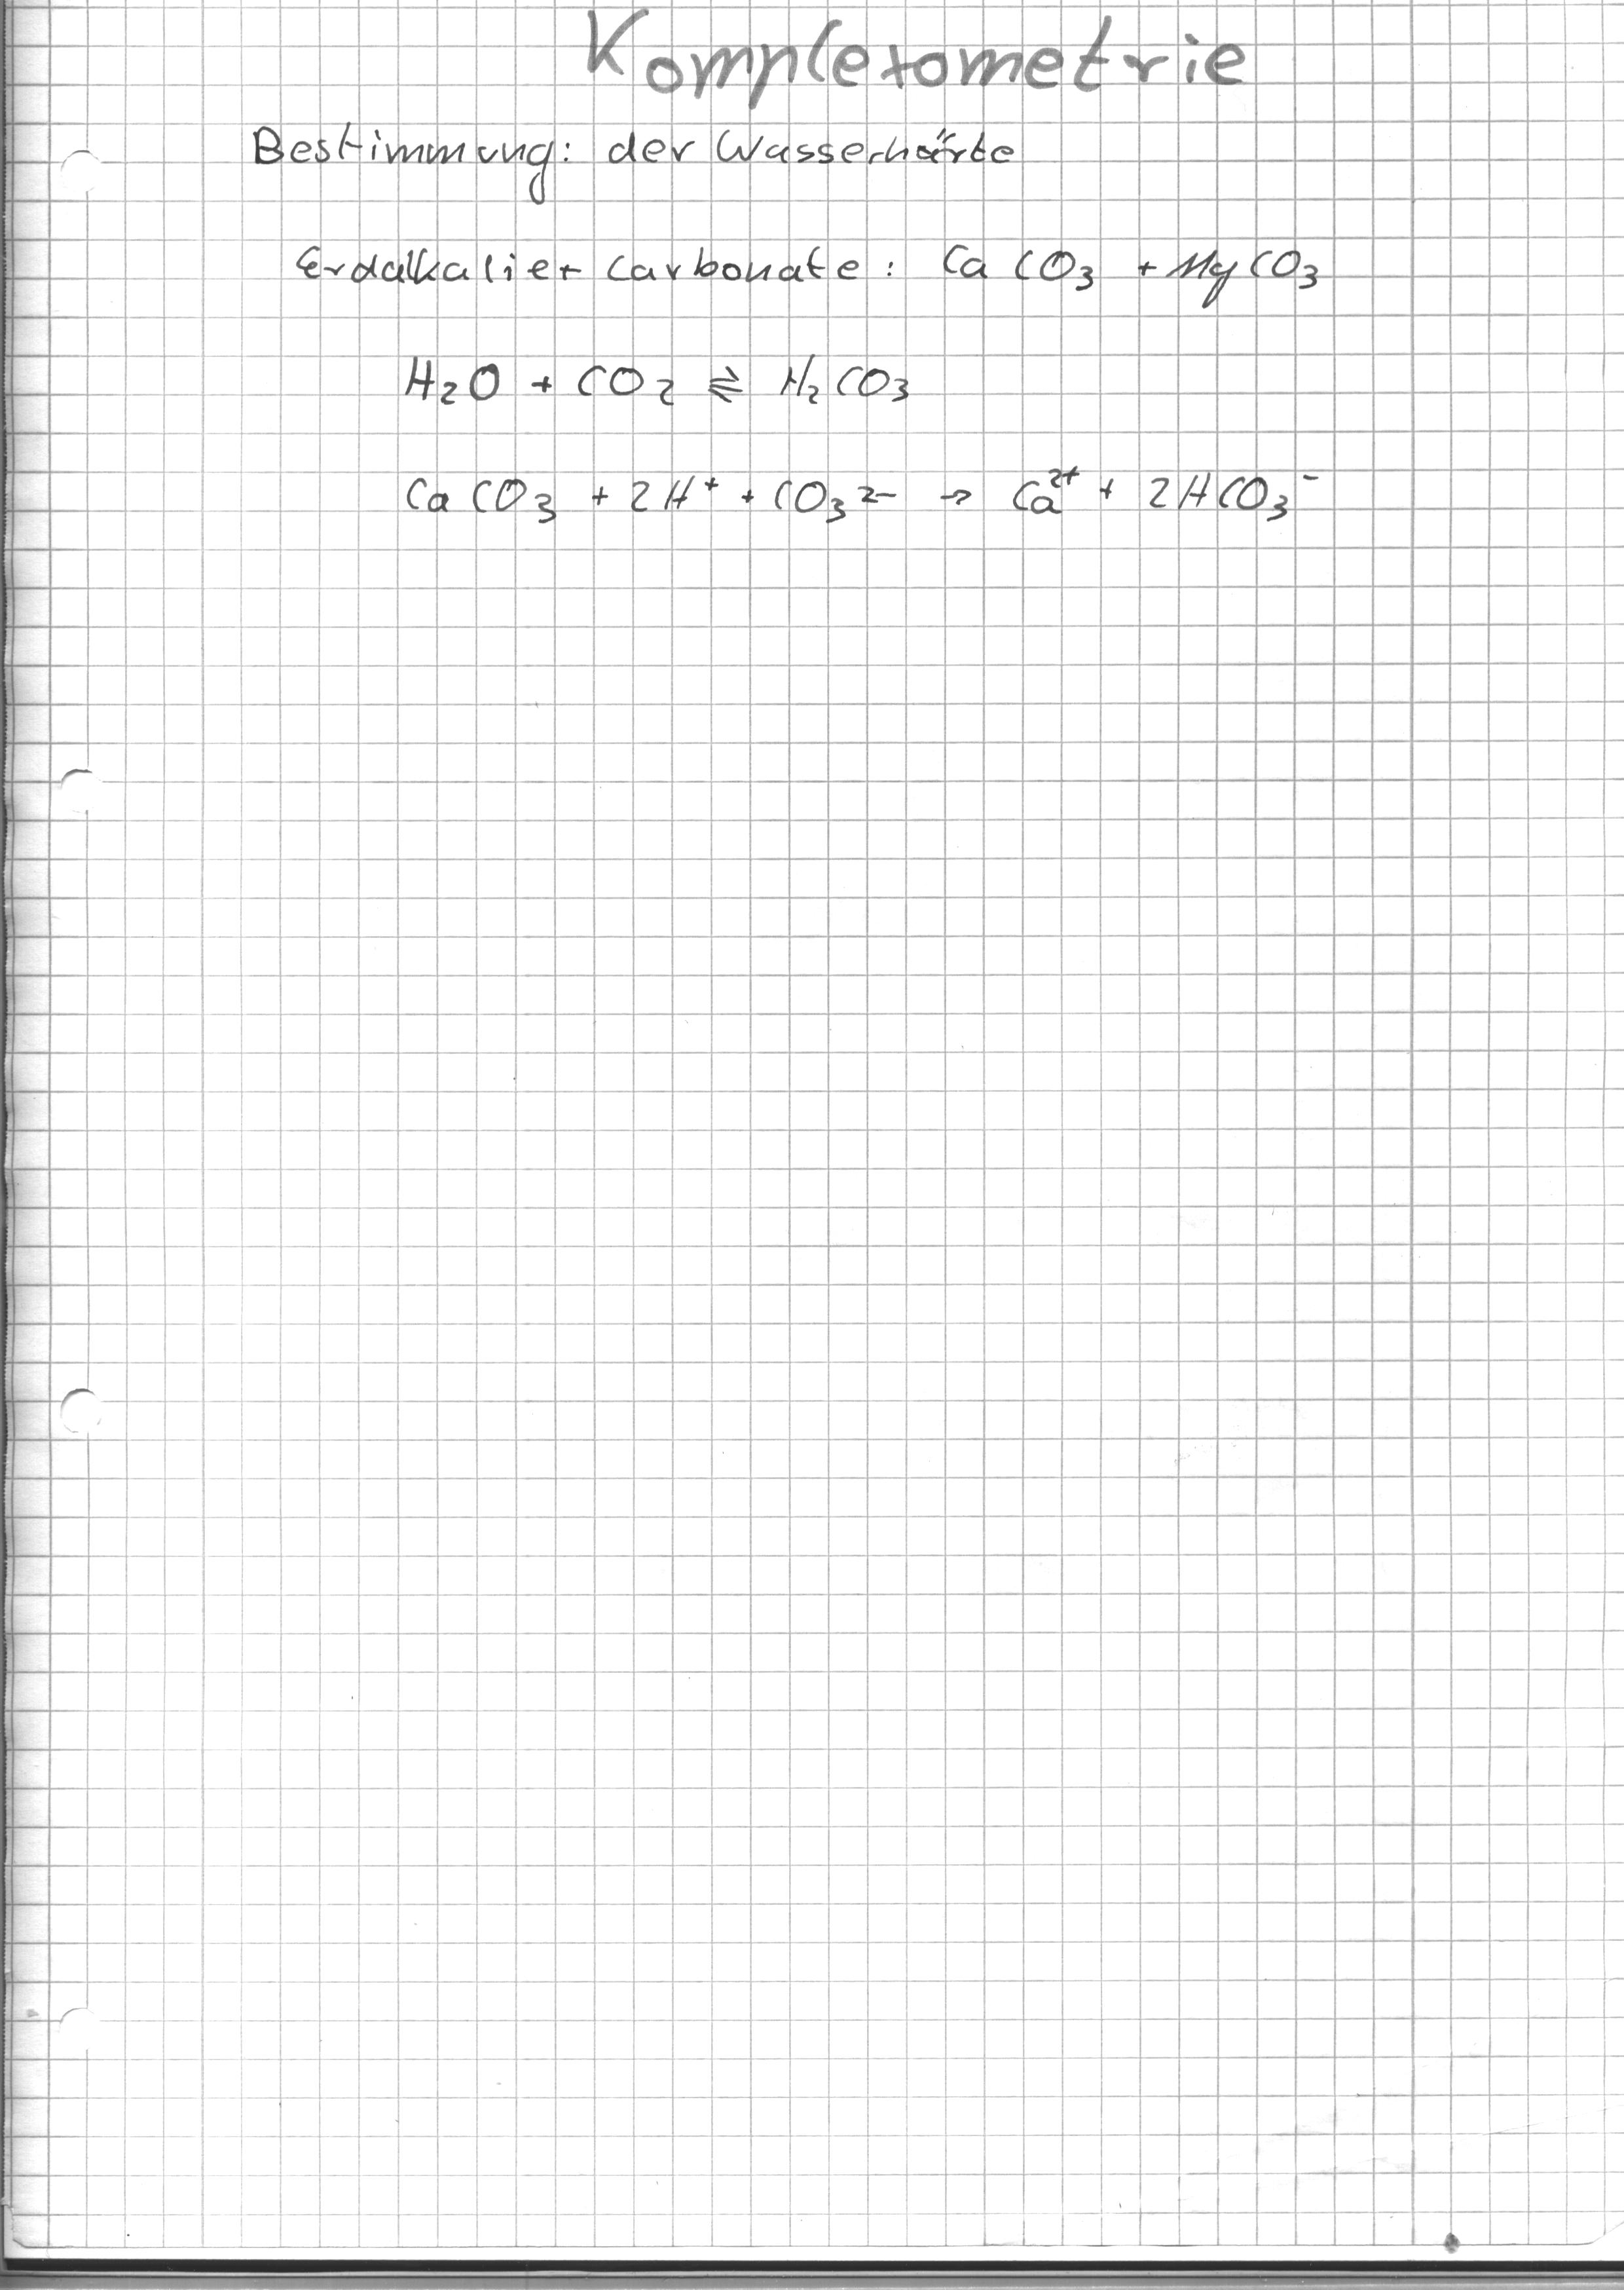 Komplexometrie
Bestimmung: der Wasserhärte
Erdalkalier + Carbonate: CaCO₃ + MgCO₃
H₂O + CO₂ ⇌ H₂CO₃
CaCO₃ + 2H⁺ + CO₃²⁻ → Ca²⁺ + 2HCO₃⁻